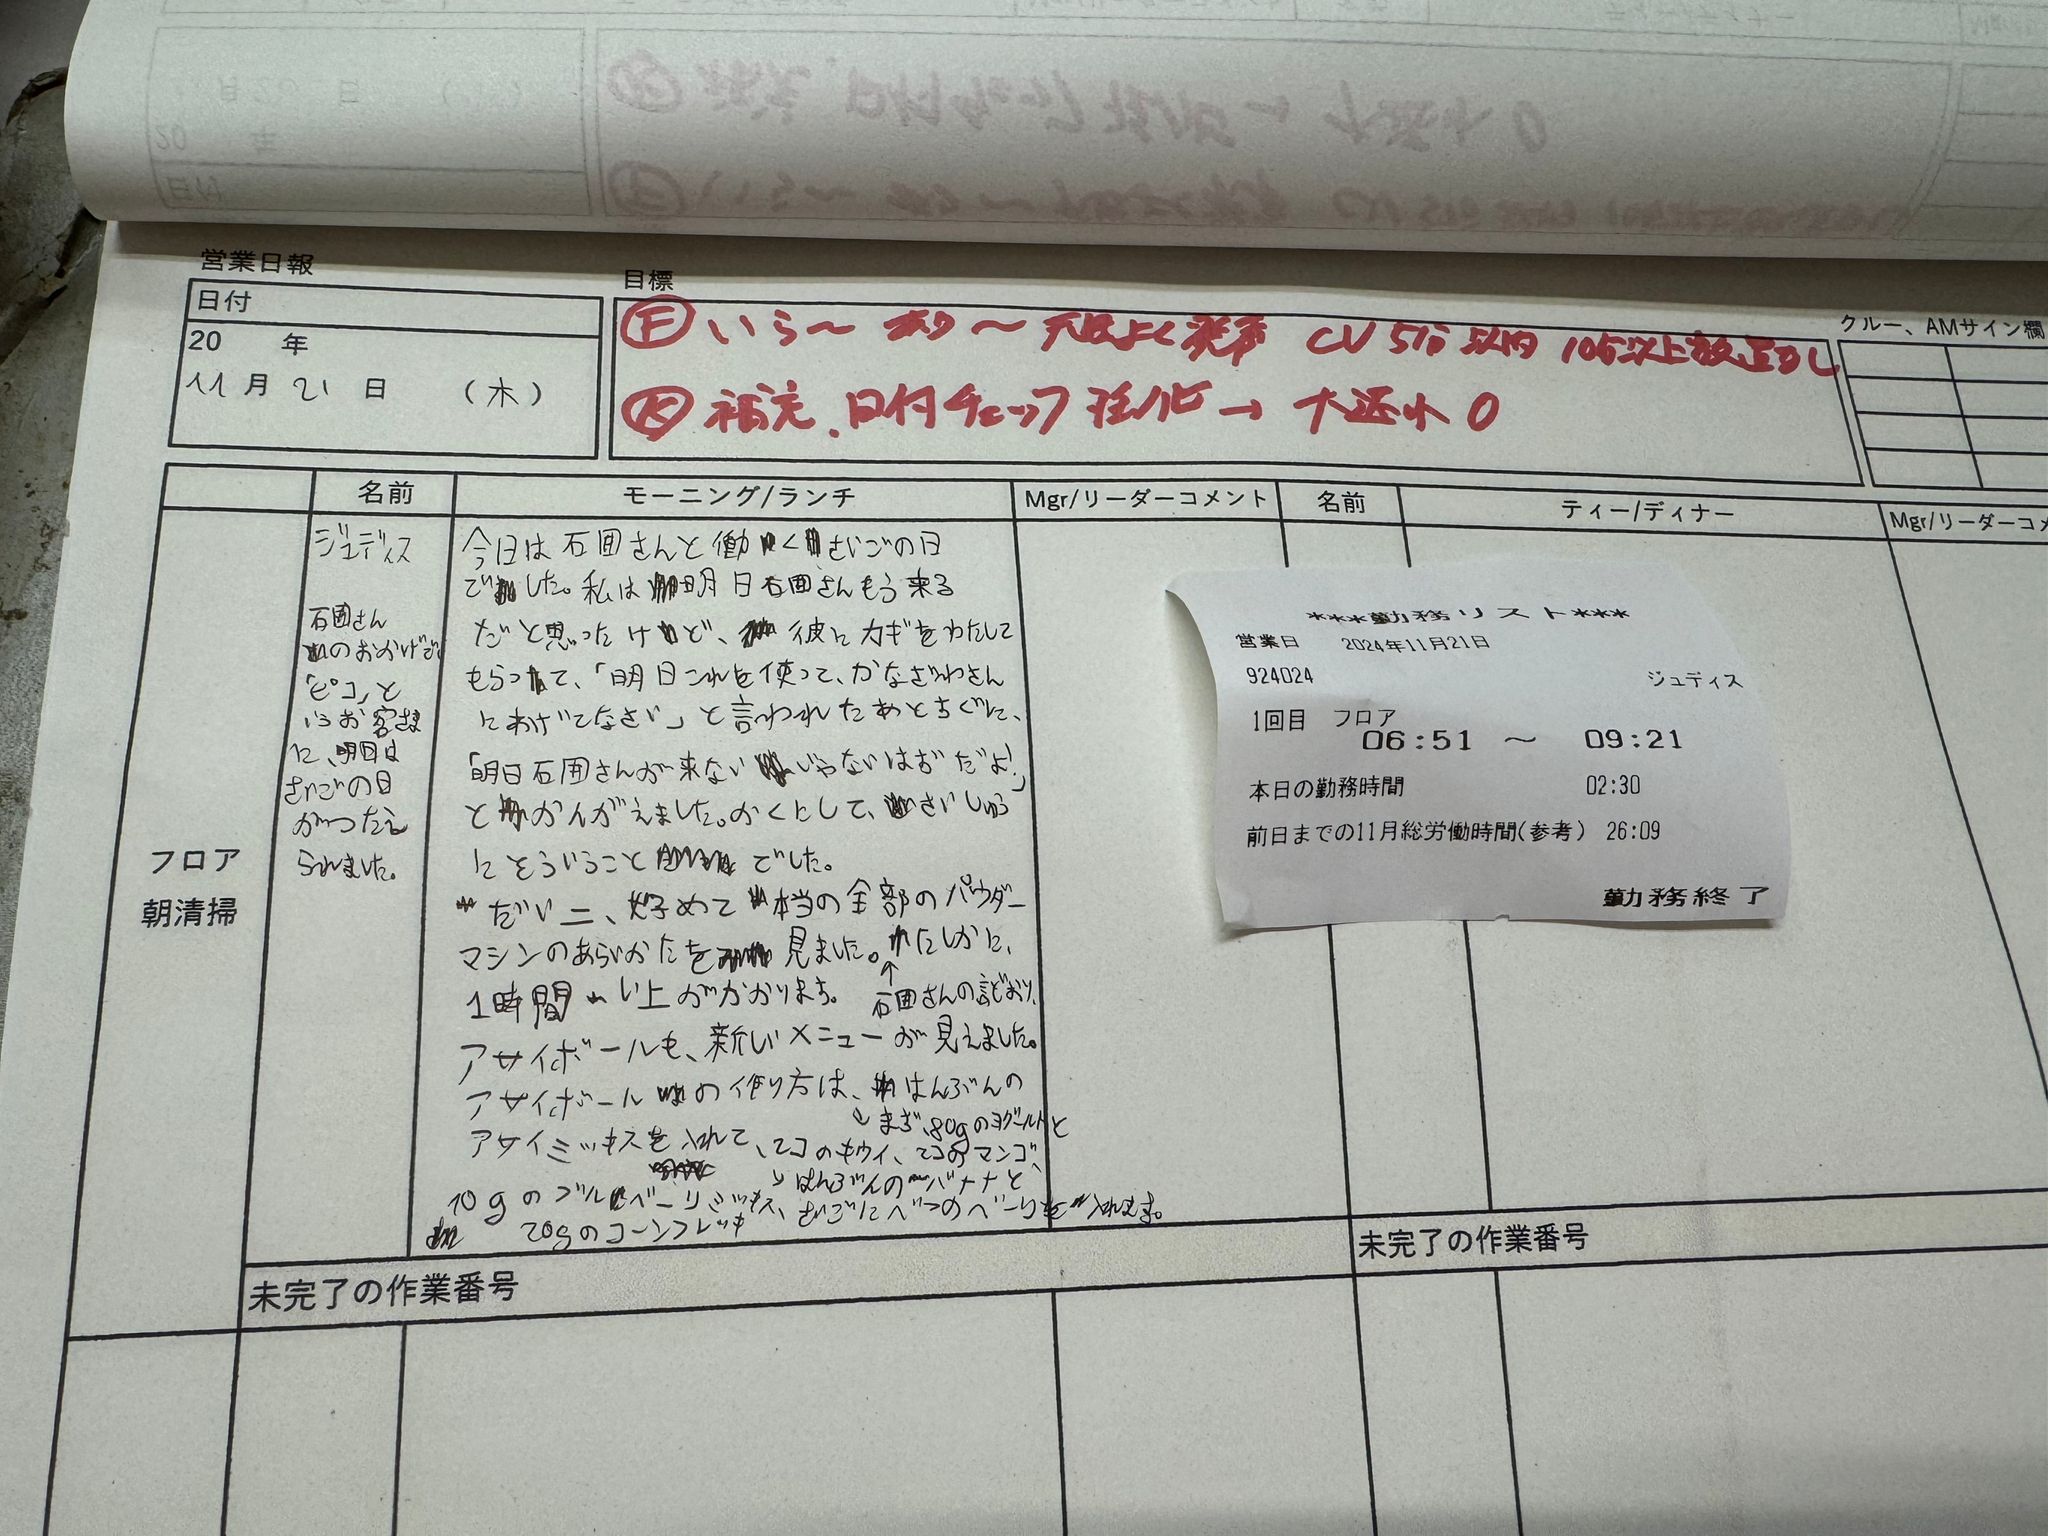 営業日報
日付
20 年
11月 21日 (木)
目標
Ⓕ いら〜 あり〜 元気よく CV 5分以内 10分以上
Ⓚ 補充、日付チェック → 0
クルー、AMサイン欄
名前
モーニング/ランチ
Mgr/リーダーコメント
名前
ティー/ディナー
Mgr/リーダーコメ
フロア
朝清掃
ジュディス
石囲さん
のおかげで
「ピコ」と
いうお客さま
に、明日は
さいごの日
がつたえ
られました。
今日は石囲さんと働くさいごの日
でした。私は明日石囲さんもう来る
だと思ったけど、彼にカギをわたして
もらって、「明日これを使って、かなざわさん
にあげてなさい」と言われたあとちぐに、
「明日石囲さんが来ないじゃないはずだよ!」
とかんがえました。かくにして、さいしゅう
にそういうことでした。
だい二、好めて本当の全部のパウダー
マシンのあらいかたを見ました。たしかに、
↑
1時間い上がかかります。 石囲さんの言どおり、
アサイボールも、新しいメニューが見えました。
アサイボールの作り方は、はんぶんの
↘まず、80gのヨグールトと
アサイミックスを入れて、2コのキウイ、2コのマンゴ、
↘はんぶんのバナナと
10gのブルーベーリミックス、さいごにべつのベーリを入れます。
20gのコーンフレッキ
***勤務リスト***
営業日 2024年11月21日
924024 ジュディス
1回目 フロア
06:51 〜 09:21
本日の勤務時間 02:30
前日までの11月総労働時間(参考) 26:09
勤務終了
未完了の作業番号
未完了の作業番号